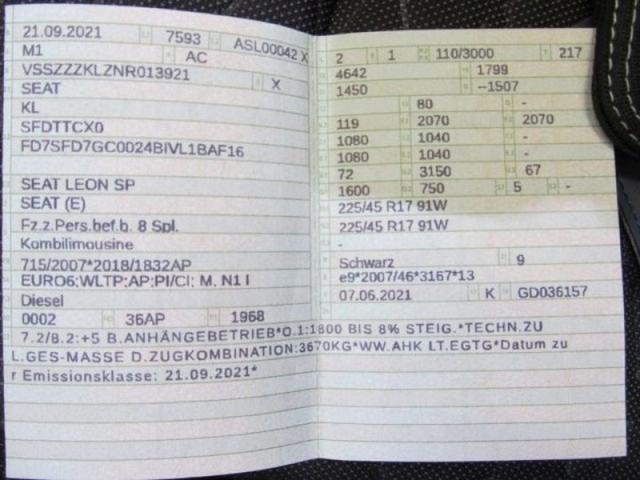 21.09.2021 7593 ASL00042 X
M1 AC
VSSZZZKLZNR013921
SEAT X
KL
SFDTTCX0
FD7SFD7GC0024BIVL1BAF16
SEAT LEON SP
SEAT (E)
Fz.z.Pers.bef.b. 8 Spl.
Kombilimousine
715/2007*2018/1832AP
EURO6;WLTP;AP;PI/CI; M, N1 I
Diesel
0002 36AP 1968
2 1 110/3000 217
4642 1799
1450 --1507
80 -
119 2070 2070
1080 1040 -
1080 1040 -
72 3150 67
1600 750 5 -
225/45 R17 91W
225/45 R17 91W
-
Schwarz 9
e9*2007/46*3167*13
07.06.2021 K GD036157
7.2/8.2:+5 B.ANHÄNGEBETRIEB*O.1:1800 BIS 8% STEIG.*TECHN.ZU
L.GES-MASSE D.ZUGKOMBINATION:3670KG*WW.AHK LT.EGTG*Datum zu
r Emissionsklasse: 21.09.2021*